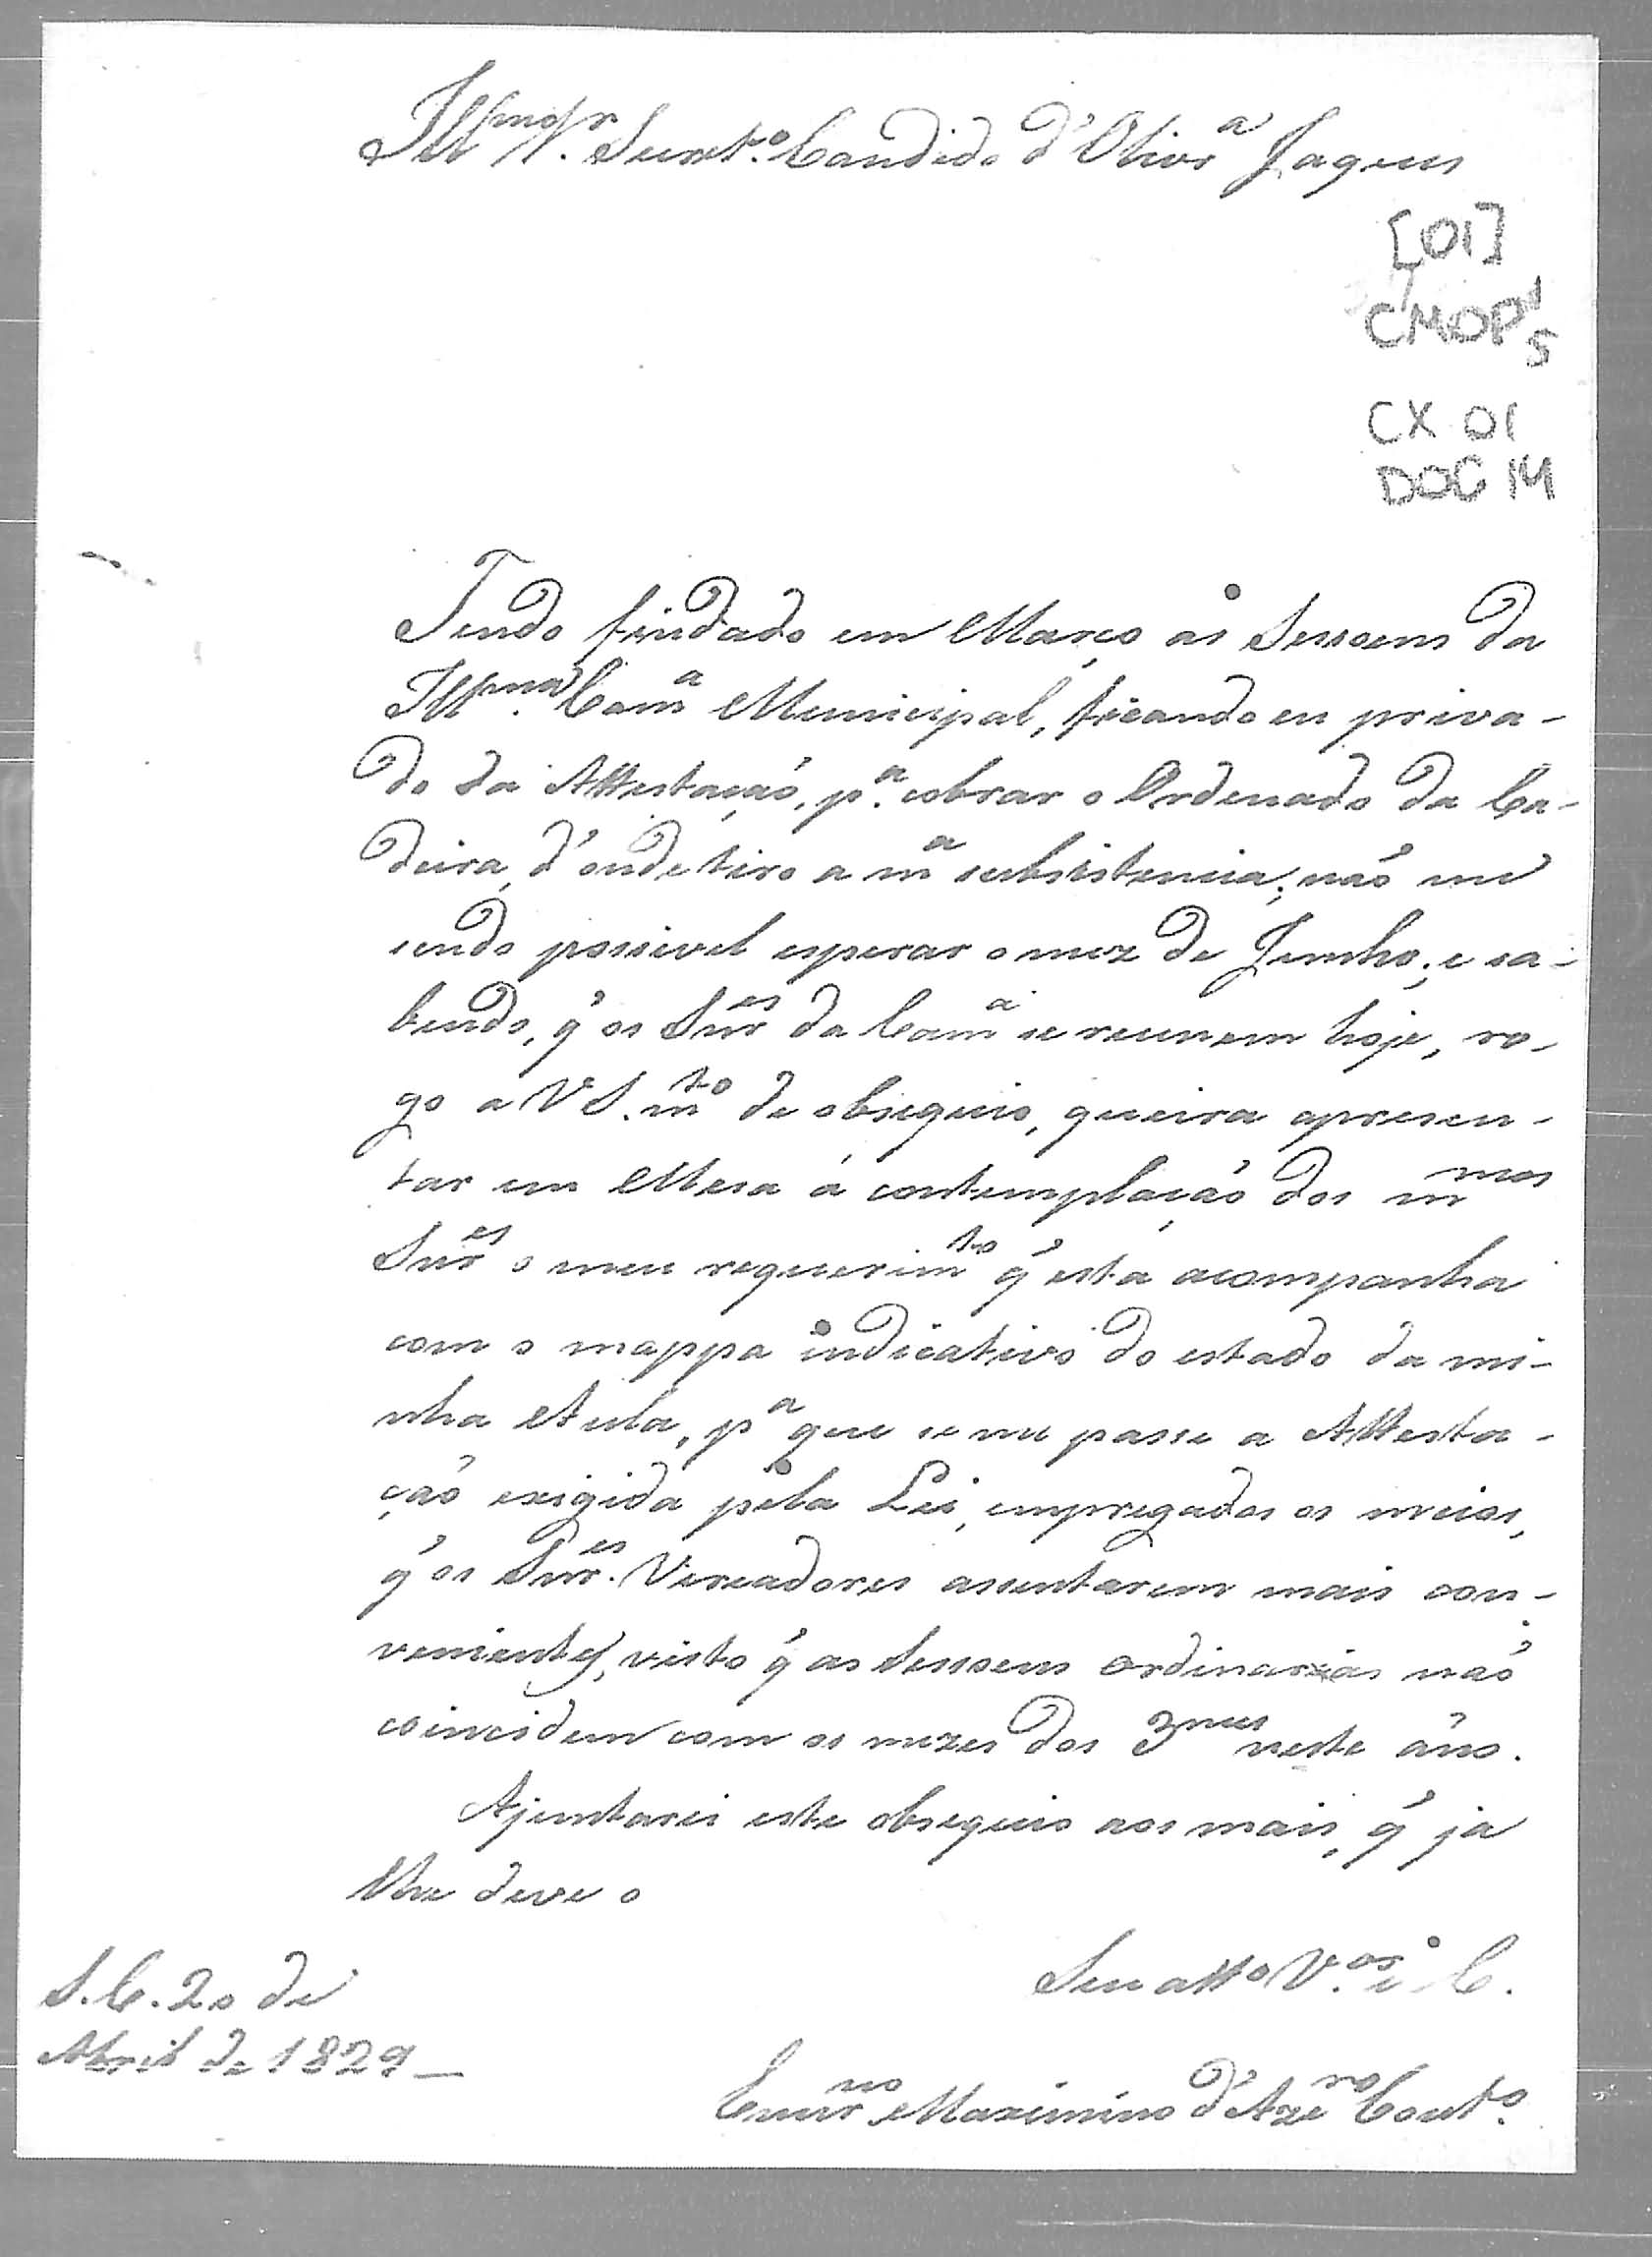 Ill^mo Sr. Secret.º Candido d'Olivr^a Jaques
[01]
CMOP 1
5
CX 01
DOC 14
Tendo findado em Março as Sessoens da
Ill^ma. Cam^a Municipal, ficando eu priva-
do da Attestação, p.^a cobrar o Ordenado da Ca-
deira, d'onde tiro a m^a subsistencia; não me
sendo possivel esperar o mez de Junho; e sa-
bendo, q̃ os Snr^es da Cam^a se reunem hoje, ro-
go a VS. m^to de obsequio, queira apresen-
tar em Mesa á contemplação dos m^mos
Snr^es o meu requerim^to q̃ esta acompanha
com o mappa indicativo do estado da mi-
nha Aula, p^a que se me passe a Attesta-
ção exigida pela Lei, empregados os meios,
q̃ os Snr^es. Vereadores assentarem mais con-
venientes, visto q̃ as Sessoens ordinarias não
coincidem com os mezes dos 3^mes neste ãno.
Ajuntarei este obsequio aos mais, q̃ já
lhe deve o
S.C. 20 de
Abril de 1829_
Seu att^o V.^or e C.
Maximino d'Aze^ro Cout^o.